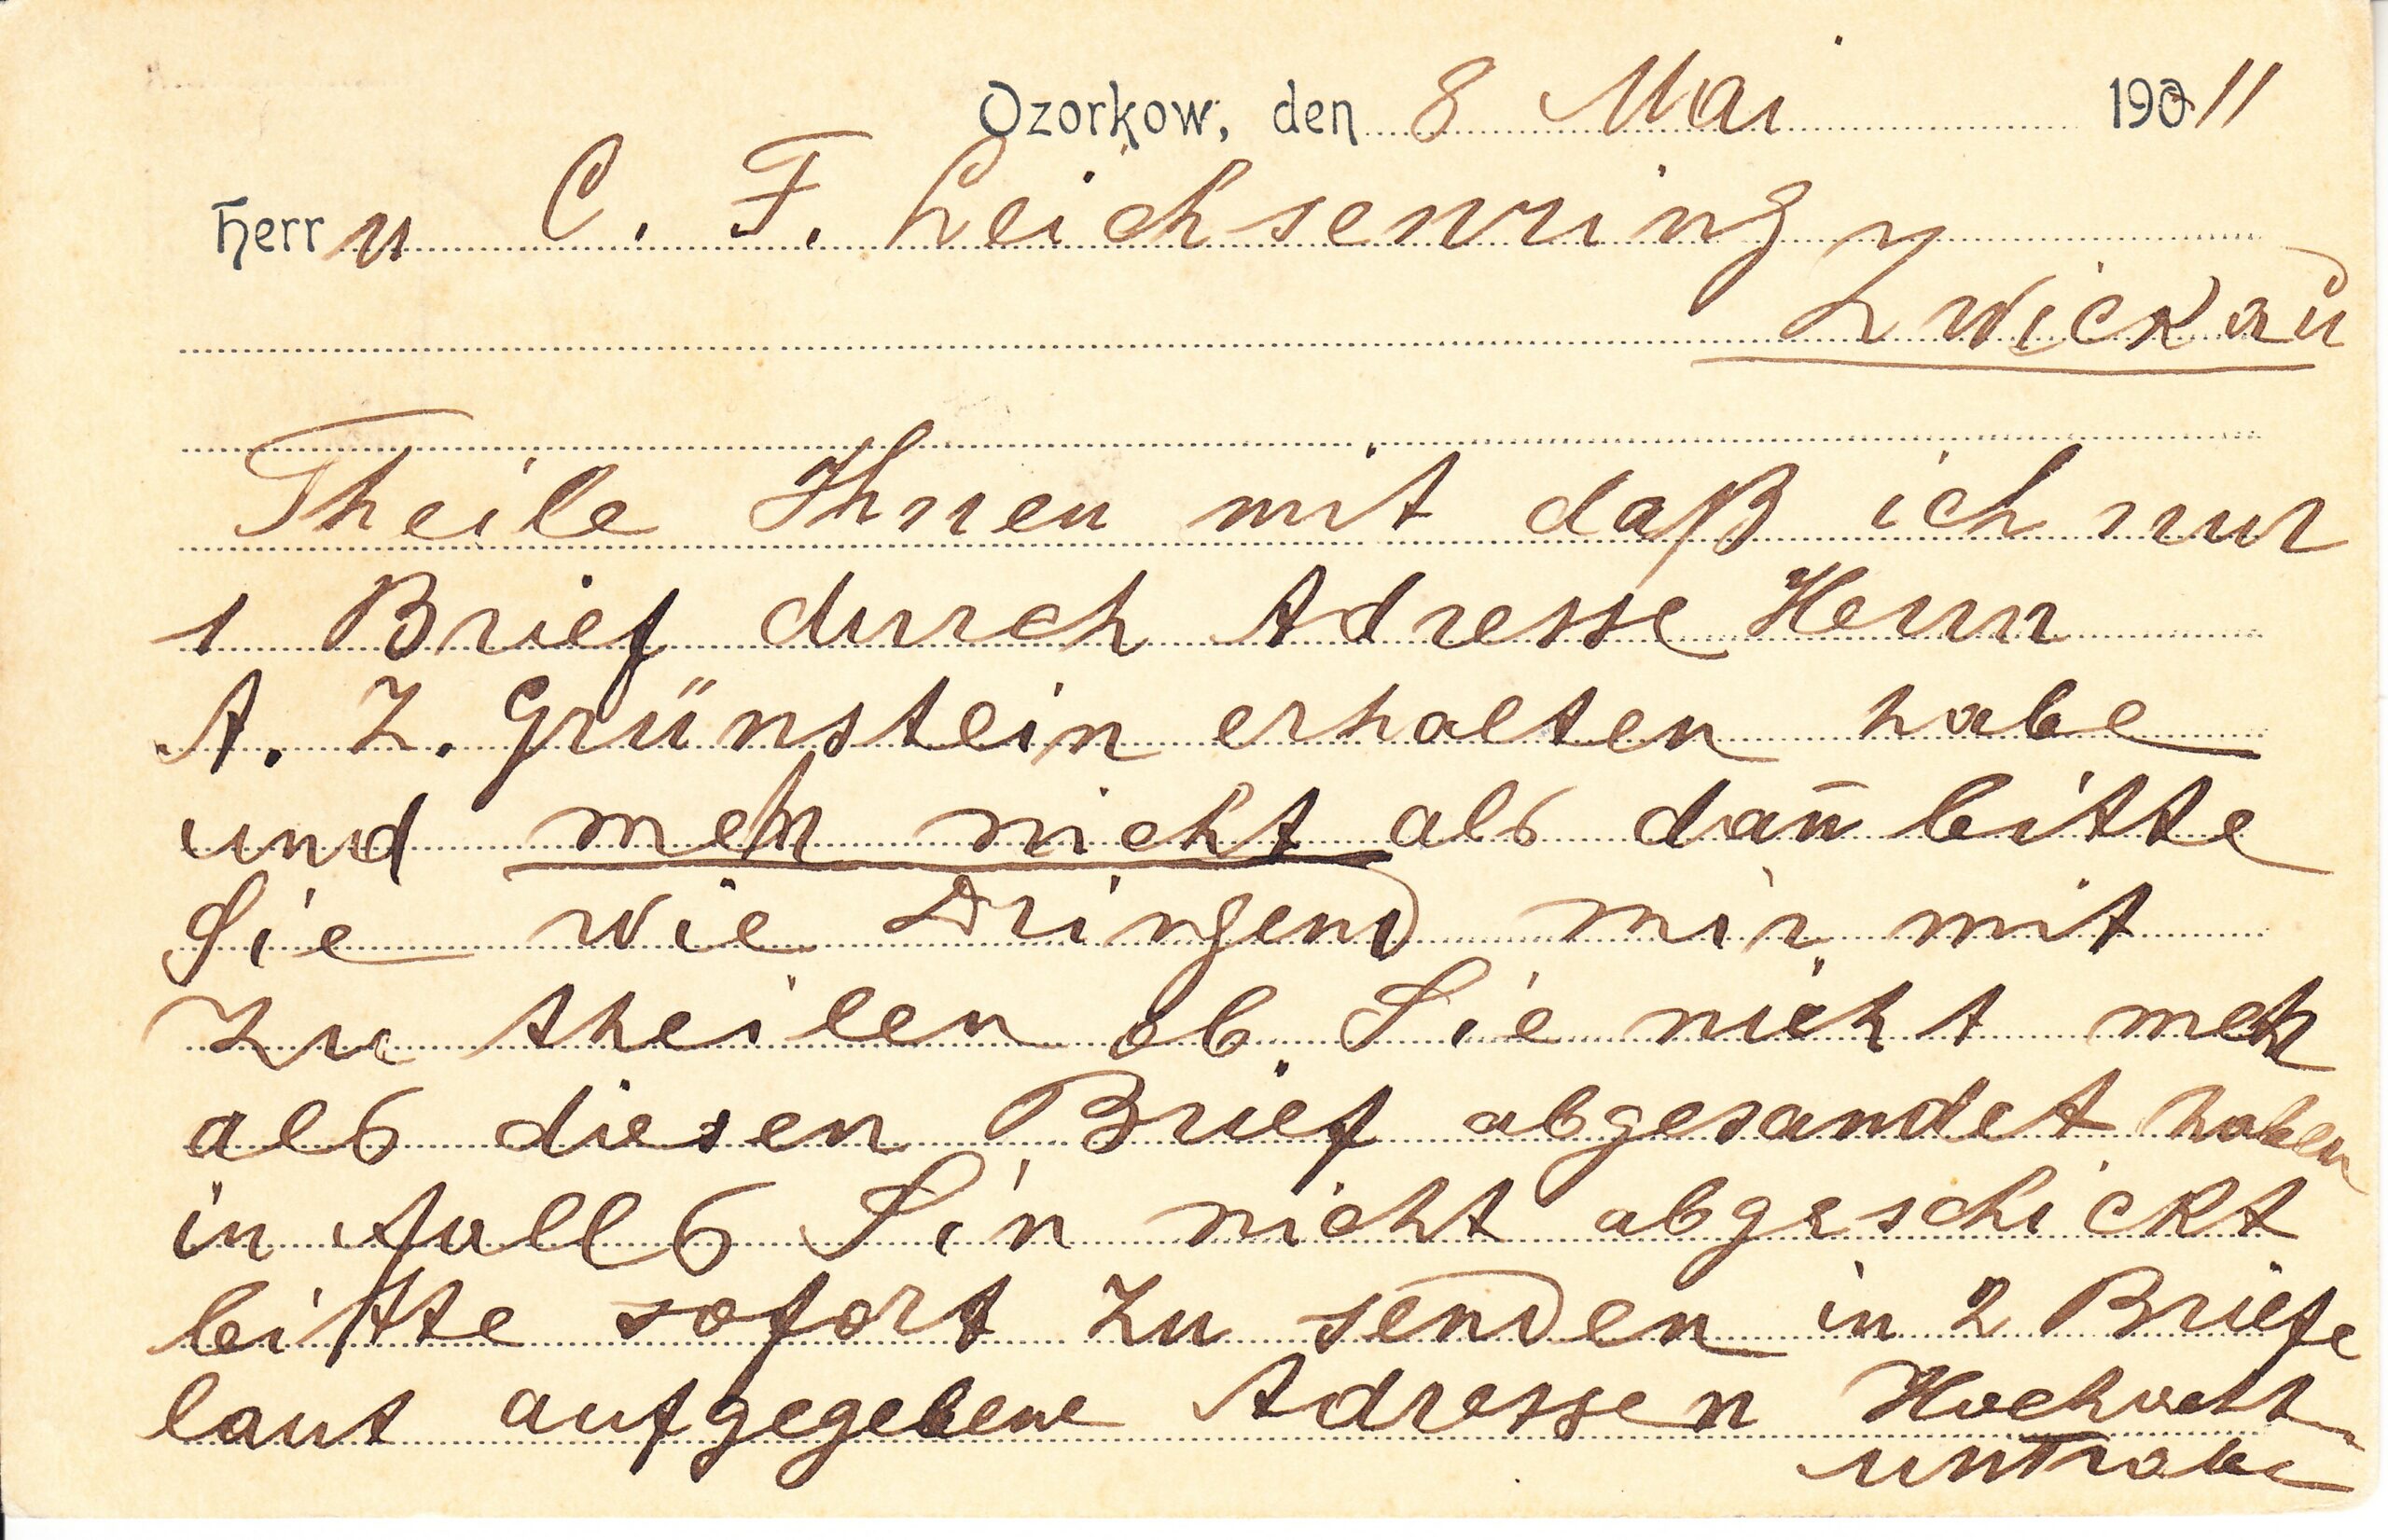 Ozorkow, den 8 Mai 190 11
Herrn C. F. Leichsenring
Zwickau
Theile Ihnen mit daß ich nur
1 Brief durch Adresse Herrn
A. Z. Grünstein erhalten habe
und meh nicht als dan̄ bitte
Sie wie Dringend mir mit
zu theilen ob Sie nicht meh
als diesen Brief abgesandet haben
in falls Sin nicht abgeschickt
bitte sofort zu senden in 2 Briefe
laut aufgegebene Adressen